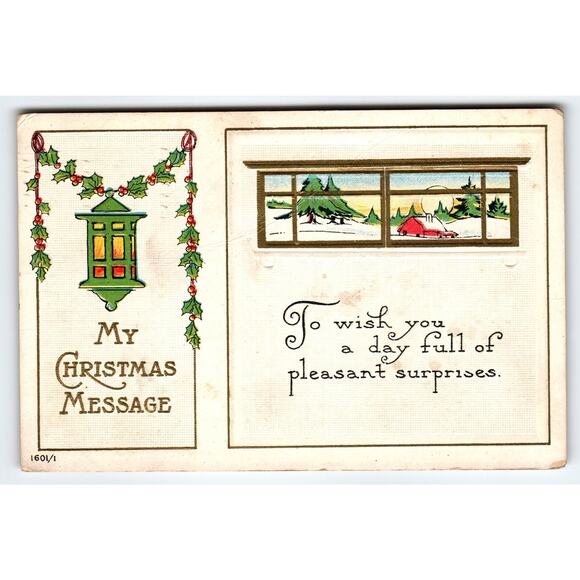 My
Christmas
Message
To wish you
a day full of
pleasant surprises.
1601/1